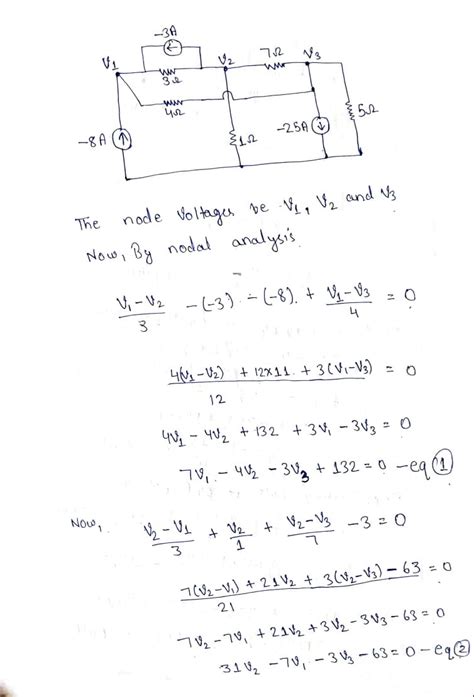 -3A
V1 V2 7Ω V3
3Ω
4Ω
-8A 1Ω -25A 5Ω
The node voltages be V1, V2 and V3
Now, By nodal analysis
(V1-V2)/3 -(-3) -(-8) + (V1-V3)/4 = 0
(4(V1-V2) + 12x11 + 3(V1-V3))/12 = 0
4V1 - 4V2 + 132 + 3V1 - 3V3 = 0
7V1 - 4V2 - 3V3 + 132 = 0 -eq ①
Now, (V2-V1)/3 + V2/1 + (V2-V3)/7 -3 = 0
(7(V2-V1) + 21V2 + 3(V2-V3) - 63)/21 = 0
7V2 - 7V1 + 21V2 + 3V2 - 3V3 - 63 = 0
31V2 - 7V1 - 3V3 - 63 = 0 -eq ②